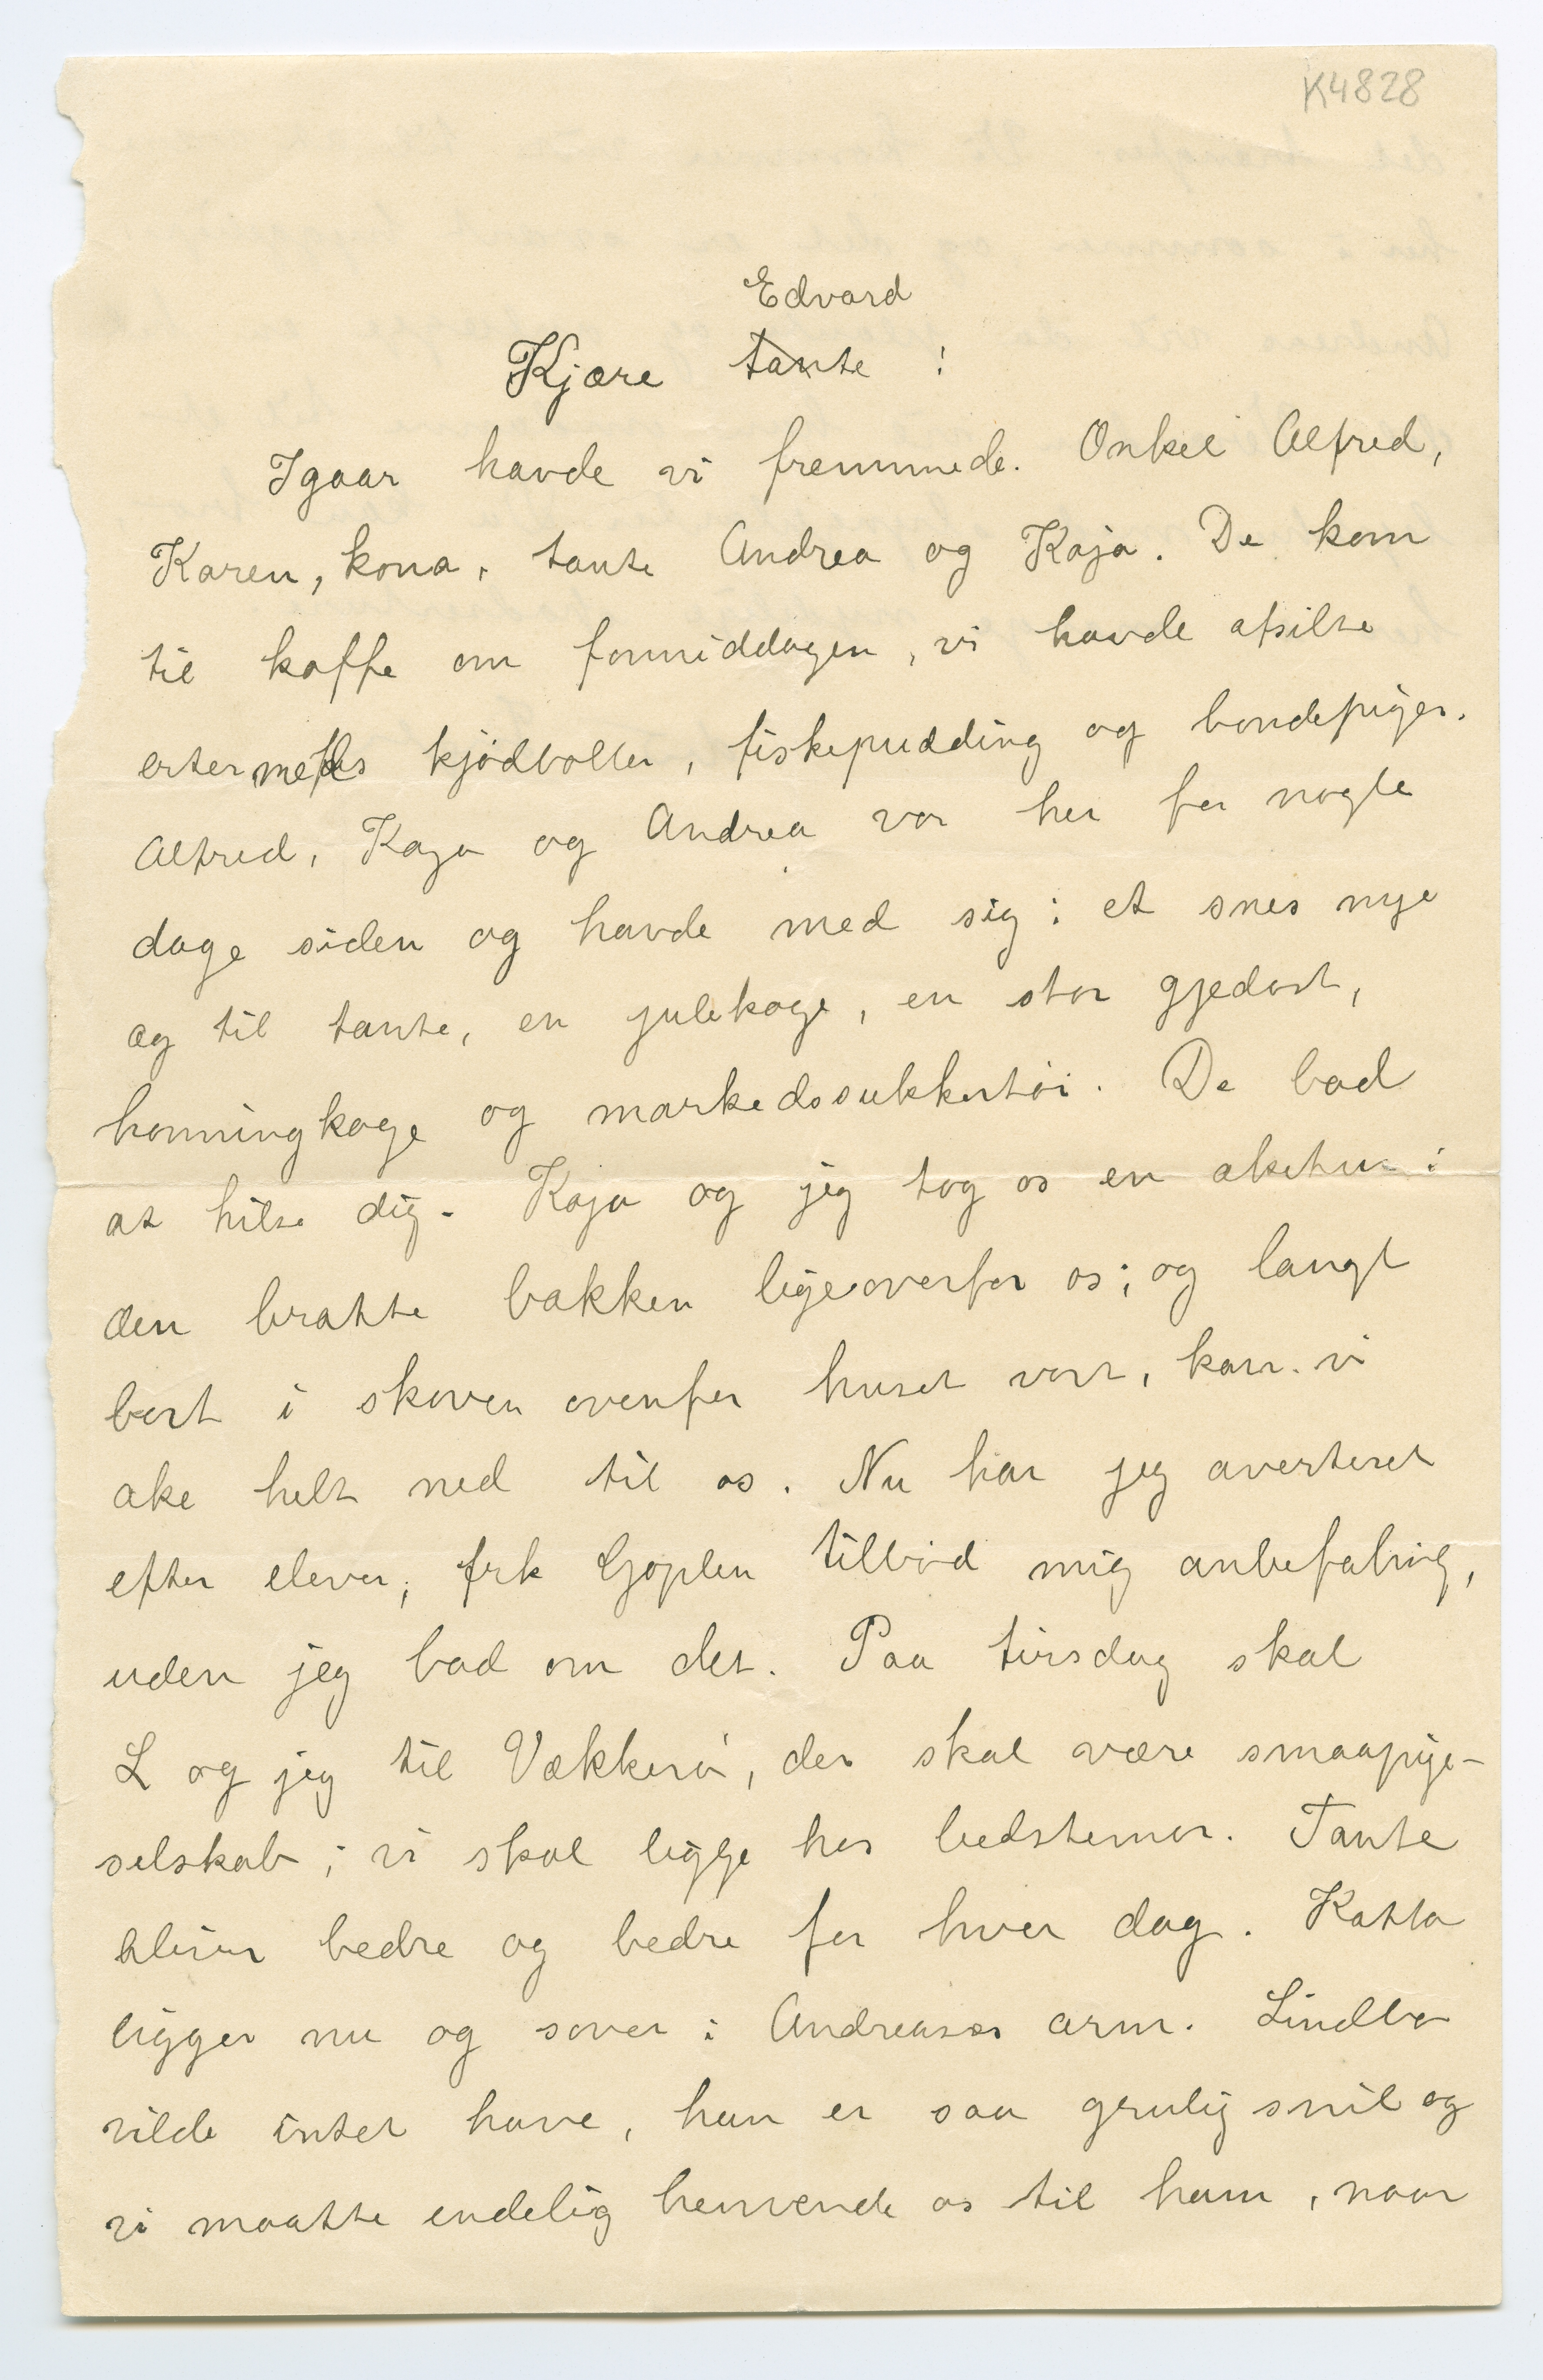 K4828
Edvard
Kjære tante !
Igaar havde vi fremmede. Onkel Alfred,
Karen, kona, tante Andrea og Kaja. De kom
til kaffe om formiddagen, vi havde afsilte
erter med kjødboller, fiskepudding og bondepiger.
Alfred, Kaja og Andrea var her for nogle
dage siden og havde med sig: et snes nye
æg til tante, en julekage, en stor gjedost,
honningkage og markedssukkertøi. De bad
at hilse dig. Kaja og jeg tog os en aketur i
den bratte bakken ligeoverfor os; og langt
bort i skoven ovenfor huset vort, kan vi
ake helt ned til os. Nu har jeg averteret
efter elever; frk Gjøplen tilbød mig anbefaling,
uden jeg bad om det. Paa tirsdag skal
L og jeg til Vækkerø, der skal være smaapige-
selskab; vi skal ligge hos bedstemor. Tante
bliver bedre og bedre for hver dag. Katta
ligger nu og sover i Andreases arm. Lindbo
vilde intet have, han er saa grulig snil og
vi maatte endelig henvende os til ham, naar